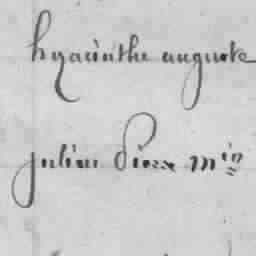 hyacinthe auguste
julien Pierre m in